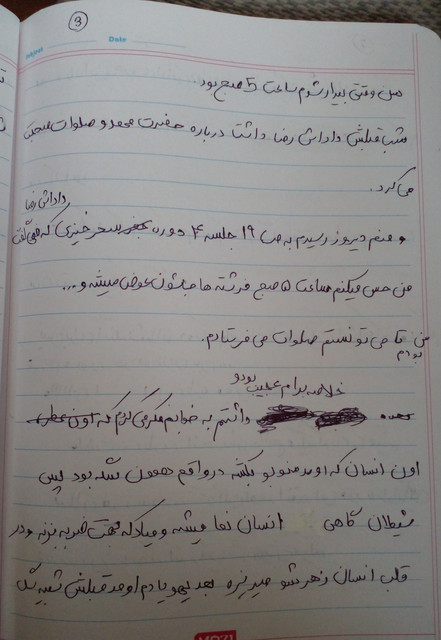 3
Subject
Date
من وقتی بیدار شدم ساعت 5 صبح بود.
شب قبلش داداش رضا داشت درباره حضرت محمد و صلوات صحبت
می‌کرد.
داداش رضا
و منم دیروز رسیدم به ص 19 جلسه 4 دوره سحرخیزی که می‌گفت
من حس میکنم ساعت 5 صبح فرشته ها جاشون عوض میشه و...
من تا می تونستم صلوات می فرستادم.
بودم
خلاصه برام عجیب بود و
داشتم به خوابم فکر می کردم که اون
اون انسان که اومد منو بکشه در واقع همون بود پس
شیطان گاهی انسان نما میشه و میاد که بهت ضربه بزنه و در
قلب انسان زهرشو میریزه بعد یهو یادم اومد قبلش شبیه